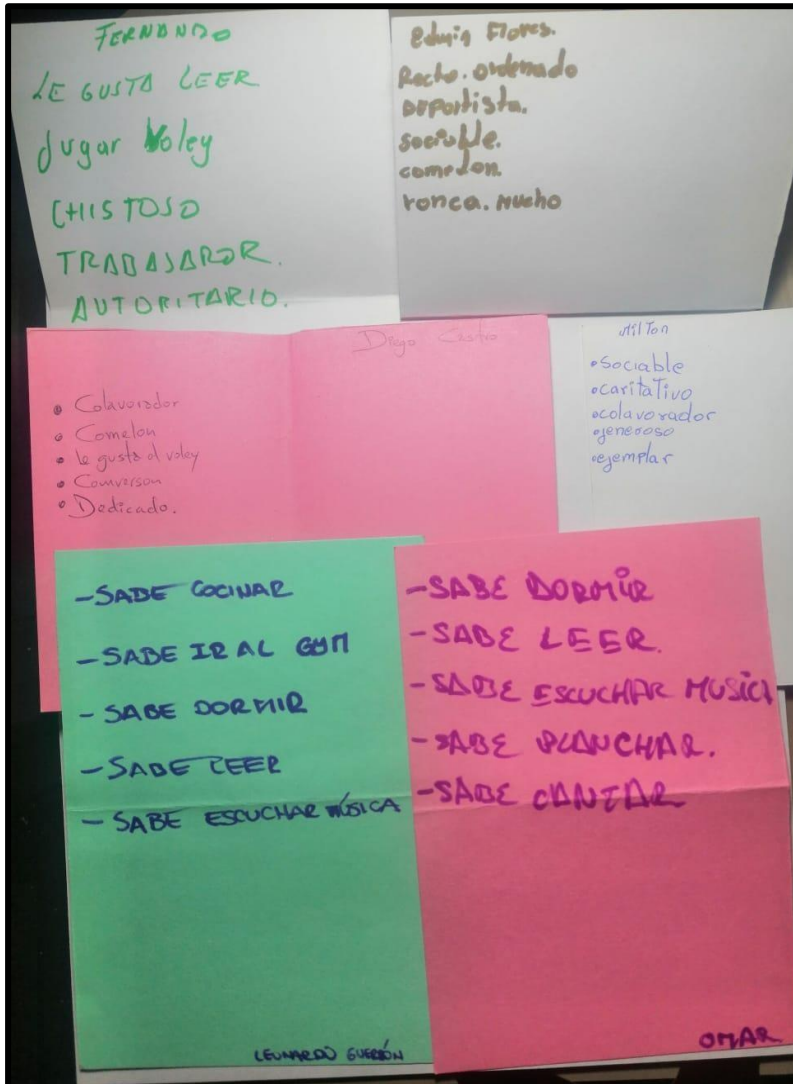 FERNANDO
LE GUSTA LEER
Jugar Voley
CHISTOSO
TRABAJADOR.
AUTORITARIO.
Edwin Flores.
Recto. ordenado
Deportista.
sociable.
comelon.
ronca. Mucho
Diego Castro
• Colavorador
• Comelon
• le gusta el voley
• Comverson
• Dedicado.
Milton
• Sociable
• caritaTivo
• colavorador
• jeneroso
• ejemplar
- SABE COCINAR
- SABE IR AL GYM
- SABE DORMIR
- SABE LEER
- SABE ESCUCHAR MÚSICA
LEONARDO GUERRÓN
- SABE DORMIR
- SABE LEER.
- SABE ESCUCHAR MUSICA
- SABE PLANCHAR.
- SABE CANTAR
OMAR